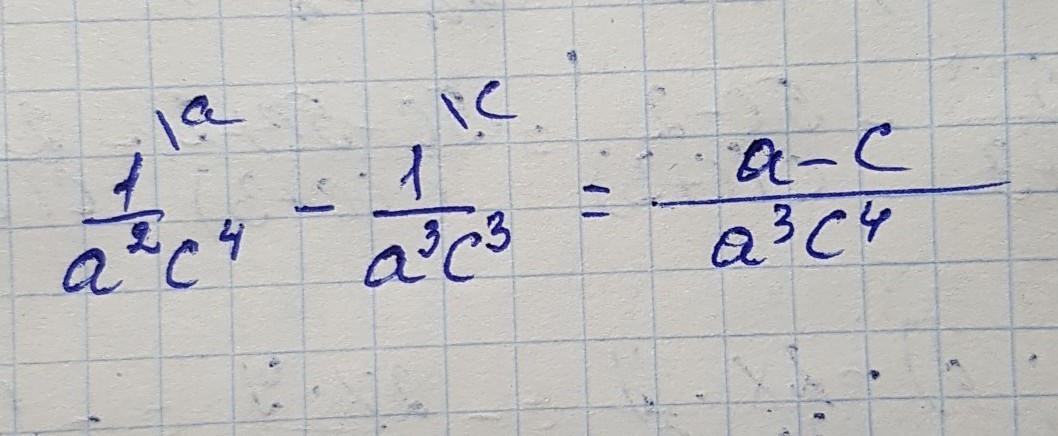 \a \c
1/a²c⁴ - 1/a³c³ = a-c/a³c⁴